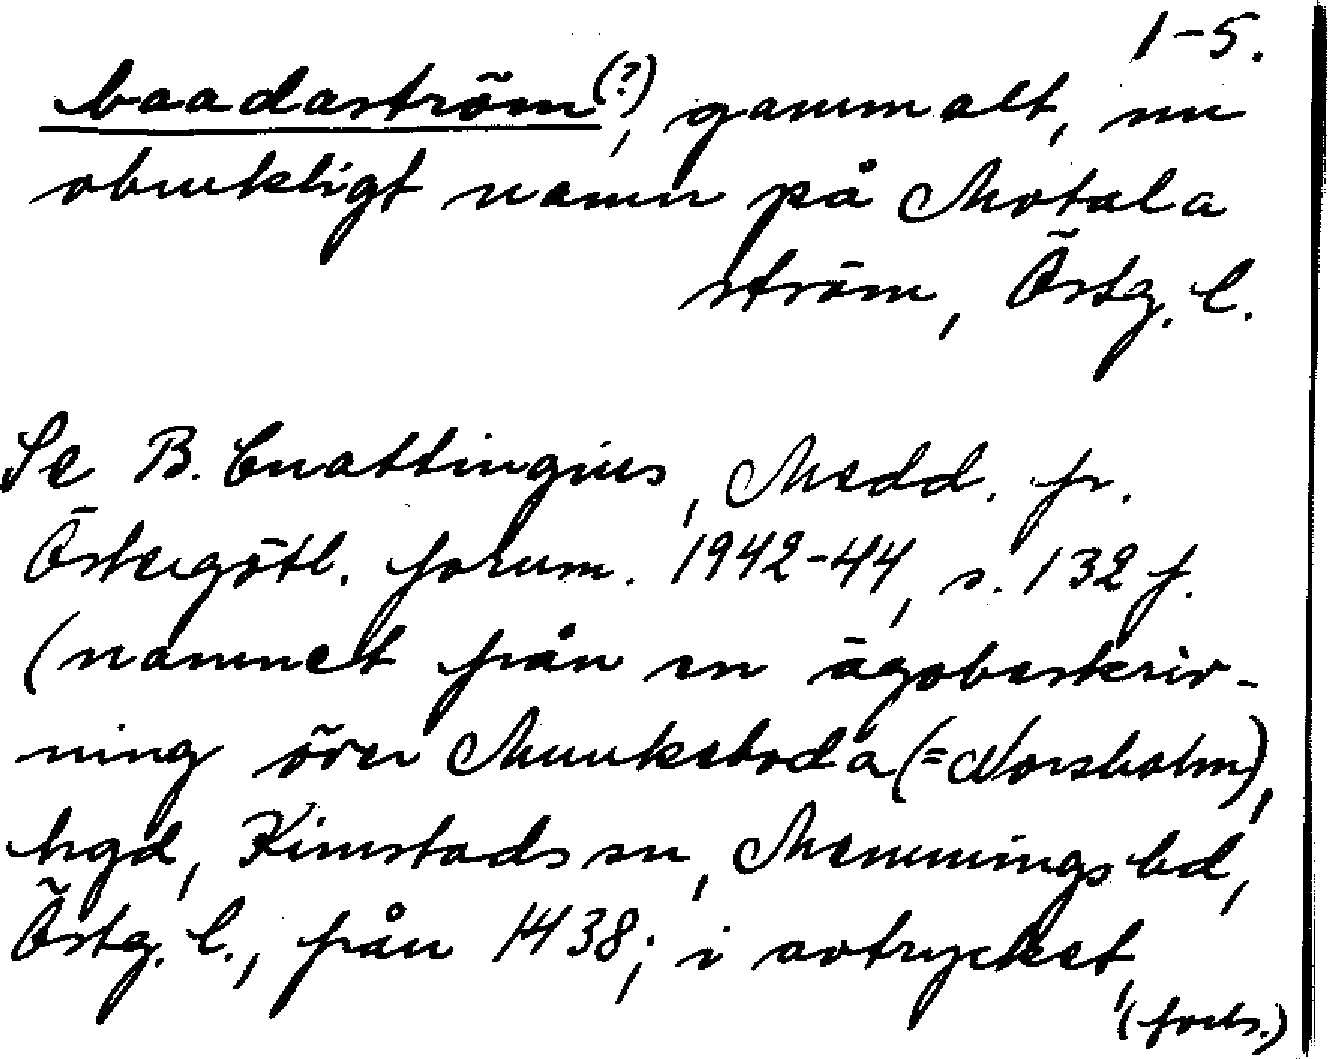 1-5.
baadaström(?), gammalt, nu
obrukligt namn på Motala
ström, Östg. l.
Se B. Cnattingius, Medd. fr.
Östergötl. fornm. 1942-44, s. 132 f.
(namnet från en ägobeskriv-
ning över Munkeboda (=Norsholm),
hgd, Kimstads sn, Memmings hd,
Östg. l., från 1438; i avtrycket,
(forts.)